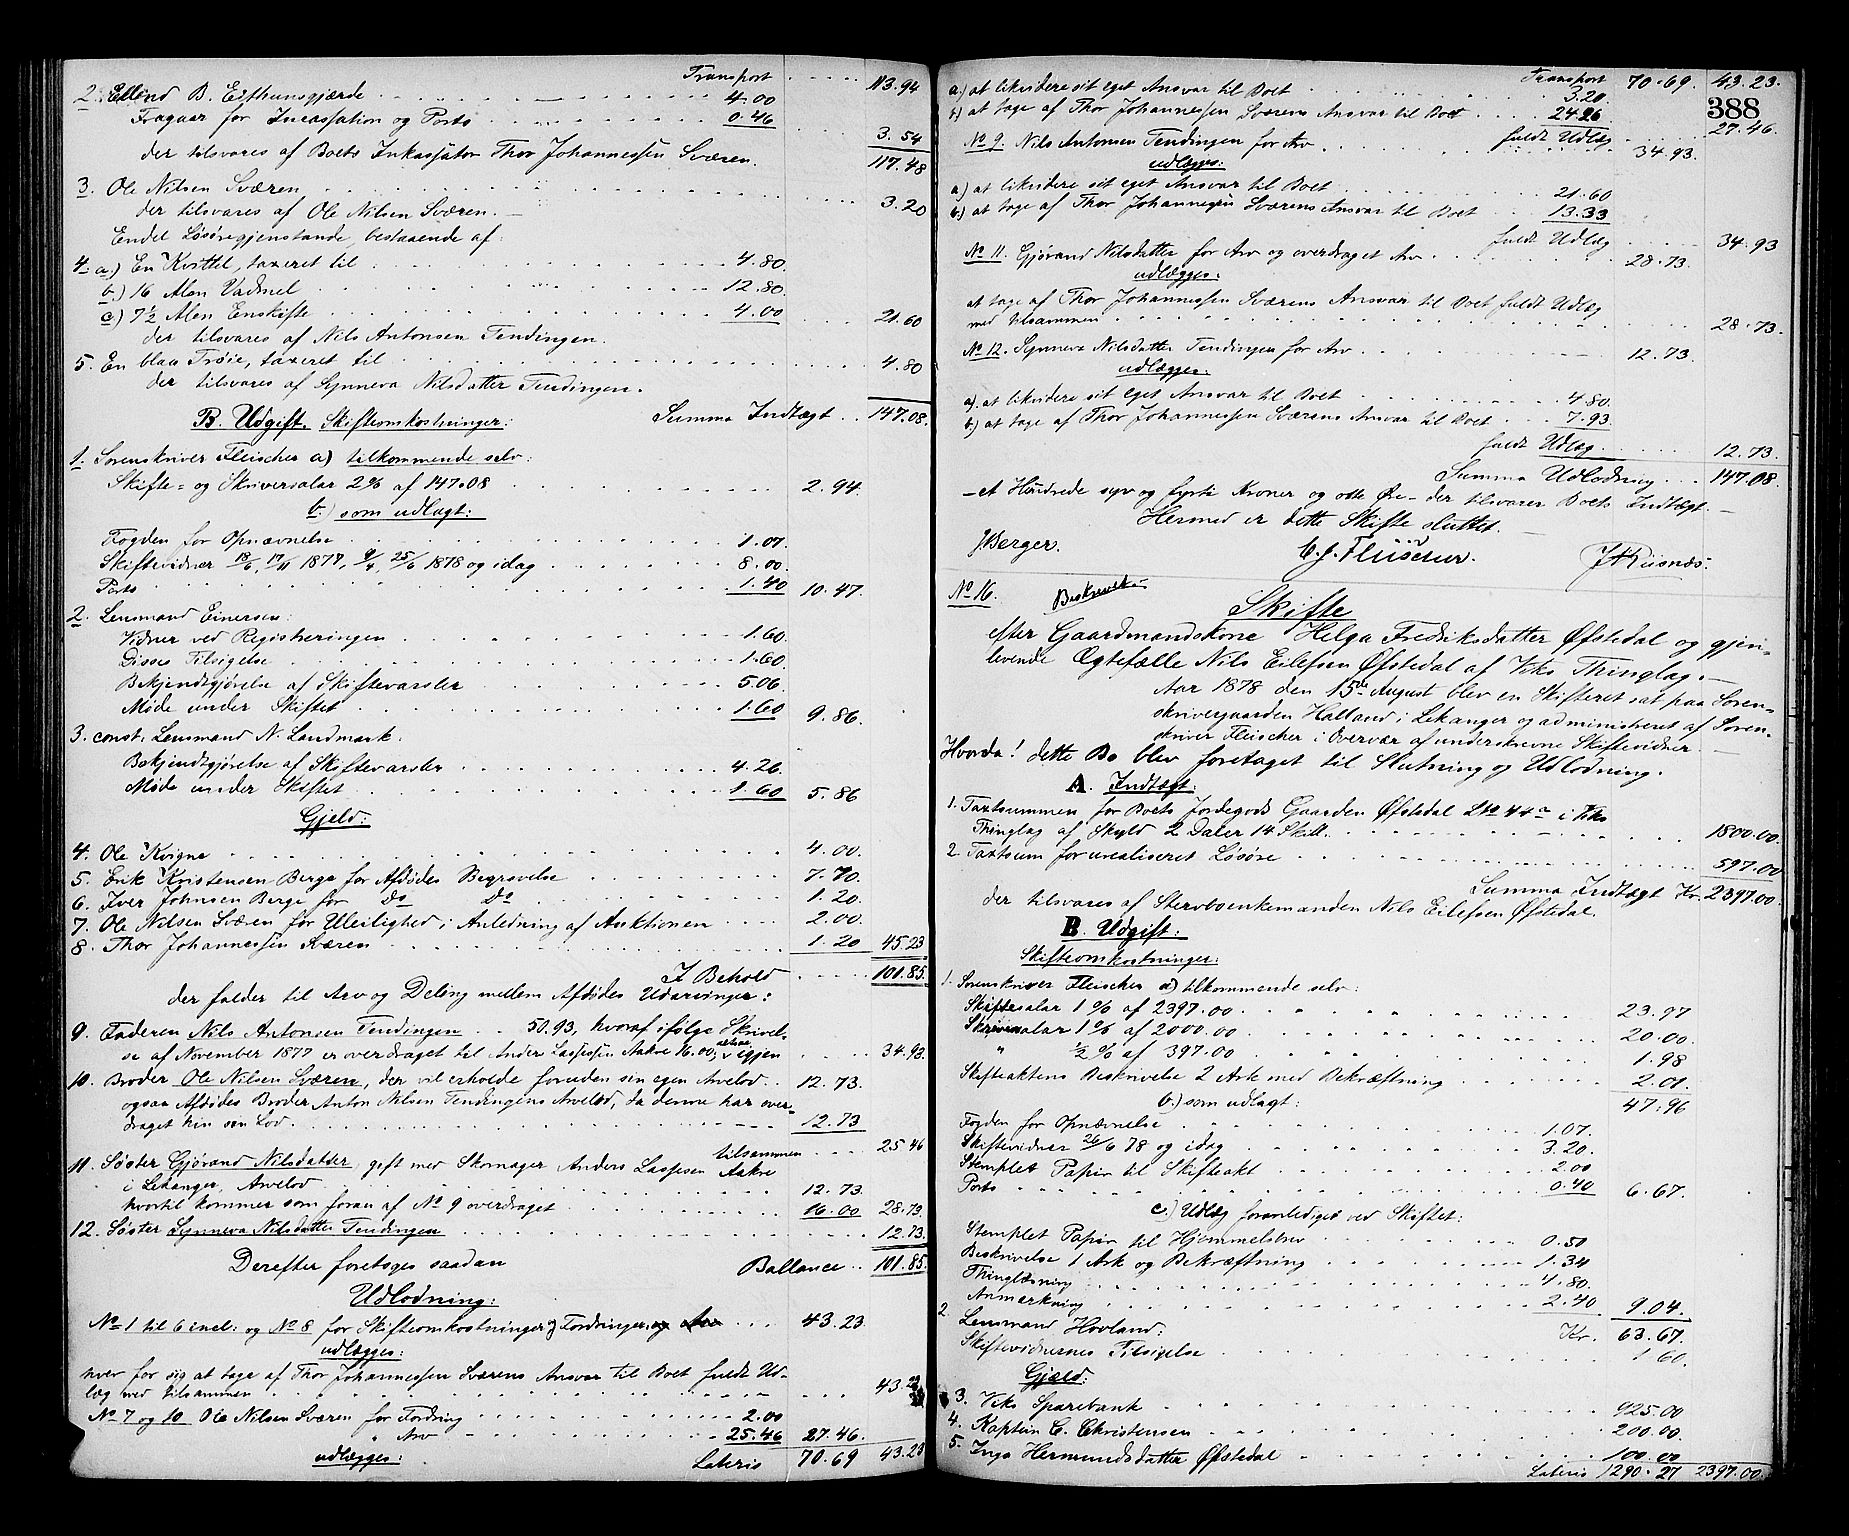 Transport . . . . 113.94
2. Ellend B. Eithunsgjærde . . . 4.00
Fragaar for Incassation og Porto . . . 0.46
3.54
der tilsvares af Boets Inkassator Thor Johannessen Sværen.
117.48
3. Ole Nilsen Sværen . . . 3.20
der tilsvares af Ole Nilsen Sværen. —
Endel Løsøregjenstande, bestaaende af:
4. a.) En Kvittel, taxeret til . . . 4.80.
b.) 16 Alen Vadmel . . . 12.80.
c) 7½ Alen Enskifte . . . 4.00 . . 21.60
der tilsvares af Nils Antonsen Tendingen.
5. En blaa Trøie, taxeret til . . . 4.80
der tilsvares af Synneva Nilsdatter Tendingen.
Summa Indtægt . . 147.08.
B. Udgift. Skifteomkostninger:
1. Sorenskriver Fleischer a) tilkommende selv:
Skifte- og Skriversalar 2% af 147.08 . . . 2.94.
b.) som udlagt:
Fogden for Opnævnelse . . . 1.07.
Skiftevidner 18/6, 17/11 1877, 9/4, 25/6 1878 og idag . . . 8.00.
Porto . . . 1.40 10.47.
2. Lensmand Einersen:
Vidner ved Registreringen . . . 1.60.
Disses Tilsigelse . . . 1.60.
Bekjendtgjørelse af Skiftevarsler . . . 5.06.
Møde under Skiftet . . . 1.60 9.86.
3. const. Lensmand N. Landmark.
Bekjendtgjørelse af Skiftevarsler . . . 4.26.
Møde under Skiftet . . . 1.60 5.86
Gjeld:
4. Ole Kvigne . . . 4.00.
5. Erik Kristensen Berge for Afdødes Begravelse . . . 7.70.
6. Iver Johnsen Berge for Do Do . . . 1.20.
7. Ole Nilsen Sværen for Uleilighed i Anledning af Auktionen . . . 2.00.
8. Thor Johannessen Sværen . . . 1.20 45.23
I Behold . . . 101.85.
der falder til Arv og Deling mellem Afdødes Udarvinger:
9. Faderen Nils Antonsen Tendingen . . 50.93, hvoraf ifølge Skrivel-
se af November 1877 er overdraget til Anders Lassesen Aakre 16.00, igjen . . . 34.93.
10. Broder Ole Nilsen Sværen, der vil erholde foruden sin egen Arvelod . . 12.73.
ogsaa Afdødes Broder Anton Nilsen Tendingens Arvelod, da denne har over-
draget hin sin Lod . . . 12.73
tilsammen . . . 25.46
11. Søster Gjørand Nilsdatter, gift med Skomager Anders Lassesen Aakre
i Lekanger, Arvelod . . . 12.73.
hvortil kommer som foran af No 9 overdraget . . . 16.00 28.73.
12. Søster Synneva Nilsdatter Tendingen . . . 12.73.
Ballance . . 101.85.
Derefter foretoges saadan
Udlodning:
No 1 til 6 incl: og No 8 for Skifteomkostninger & Fordringer . . . 43.23.
udlægges:
hver for sig at tage af Thor Johannessen Sværens Ansvar til Boet fuldt Ud-
læg med tilsammen . . . 43.23
No 7 og 10 Ole Nilsen Sværen for Fordring . . . 2.00
" Arv . . . 25.46 27.46.
udlægges: Lateris 70.69 43.23
388
Transport 70.69. 43.23.
a.) at likvidere sit eget Ansvar til Boet . . . 3.20.
b.) at tage af Thor Johannessen Sværens Ansvar til Boet . . . 24.26
fuldt Udlæg . . . 27.46.
No 9. Nils Antonsen Tendingen for Arv . . . 34.93.
udlægges:
a) at likvidere sit eget Ansvar til Boet . . . 21.60
b.) at tage af Thor Johannessen Sværens Ansvar til Boet . . . 13.33
fuldt Udlæg . . . 34.93
No 11. Gjørand Nilsdatter for Arv og overdraget Arv . . . 28.73.
udlægges:
at tage af Thor Johannessen Sværens Ansvar til Boet fuldt Udlæg
med tilsammen . . . 28.73.
No 12. Synneva Nilsdatter Tendingen for Arv . . . 12.73.
udlægges:
a). at likvidere sit eget Ansvar til Boet . . . 4.80.
b.) at tage af Thor Johannessen Sværens Ansvar til Boet . . . 7.93.
fuldt Udlæg . . . 12.73.
Summa Udlodning . . . 147.08.
— et Hundrede syv og fyrti Kroner og otte Øre — der tilsvarer Boets Indtægt. —
Hermed er dette Skifte sluttet. —
J Berger. C. J. Fleischer. J Riisnæs.
No 16. Beskrevet.
Skifte
efter Gaardmandskone Helga Fredriksdatter Øfstedal og gjen-
levende Ægtefælle Nils Eilefsen Øfstedal af Viks Thinglag. —
Aar 1878 den 15de August blev en Skifteret sat paa Soren-
skrivergaarden Halland i Lekanger og administreret af Soren-
skriver Fleischer i Overvær af underskrevne Skiftevidner. —
Hvorda! dette Bo blev foretaget til Slutning og Udlodning.
A. Indtægt:
1. Taxtsummen for Boets Jordegods Gaarden Øfstedal L No 44a i Viks
Thinglag af Skyld 2 Daler 14 Skill. . . . 1800.00.
2. Taxtsum for urealiseret Løsøre . . . 597.00
Summa Indtægt Kr. 2397.00.
der tilsvares af Stervboenkemanden Nils Eilefsen Øfstedal.
B. Udgift:
Skifteomkostninger:
1. Sorenskriver Fleischer a) tilkommende selv:
Skiftesalar 1% af 2397.00 . . . 23.97
Skriversalar 1% af 2000.00 . . . 20.00.
" ½% af 397.00 . . . 1.98
Skifteaktens Beskrivelse 2 Ark med Bekræftning . . . 2.01.
47.96
b.) som udlagt:
Fogden for Opnævnelse . . . 1.07.
Skiftevidner 26/6 78 og idag . . . 3.20.
Stemplet Papir til Skifteakt . . . 2.00
Porto . . . 0.40 6.67.
c.) Udlæg foranlediget ved Skiftet:
Stemplet Papir til Hjemmelsbrev . . . 0.50
Beskrivelse 1 Ark og Bekræftning . . . 1.34
Thinglæsning . . . 4.80.
Anmerkning . . . 2.40 9.04.
Kr. 63.67.
2. Lensmand Hovland:
Skiftevidnernes Tilsigelse . . . 1.60.
Gjæld:
3. Viks Sparebank . . . 925.00
4. Kaptein C. Christensen . . . 200.00.
5. Inga Hermundsdatter Øfstedal . . . 100.00
Lateris 1290.27 2397.00.